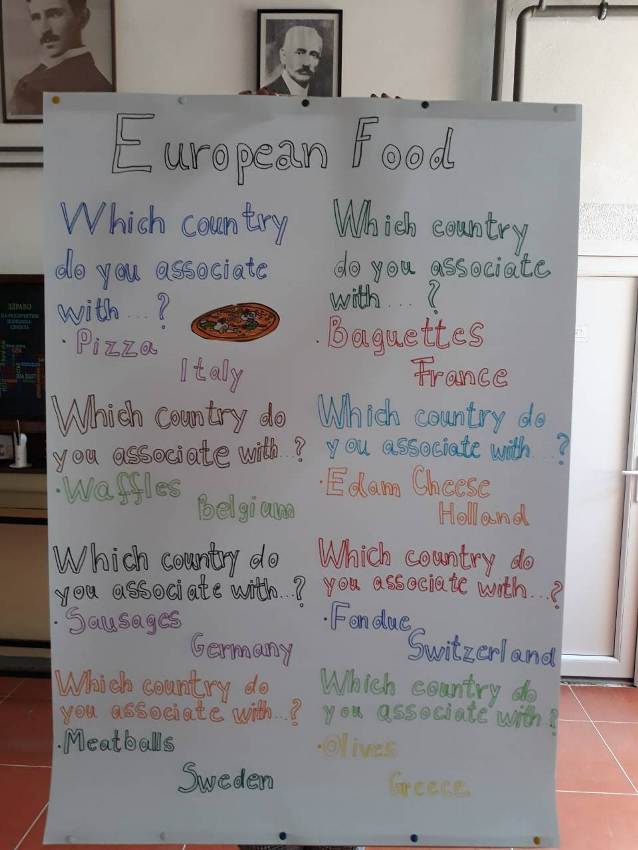 European Food
Which country
do you associate
with...?
· Pizza
Italy
Which country
do you associate
with....?
· Baguettes
France
Which country do
you associate with...?
· Waffles
Belgium
Which country do
you associate with...?
· Edam Cheese
Holland
Which country do
you associate with...?
· Sausages
Germany
Which country do
you associate with...?
· Fondue
Switzerland
Which country do
you associate with...?
· Meatballs
Sweden
Which country do
you associate with..?
· Olives
Greece
ЗДРАВО